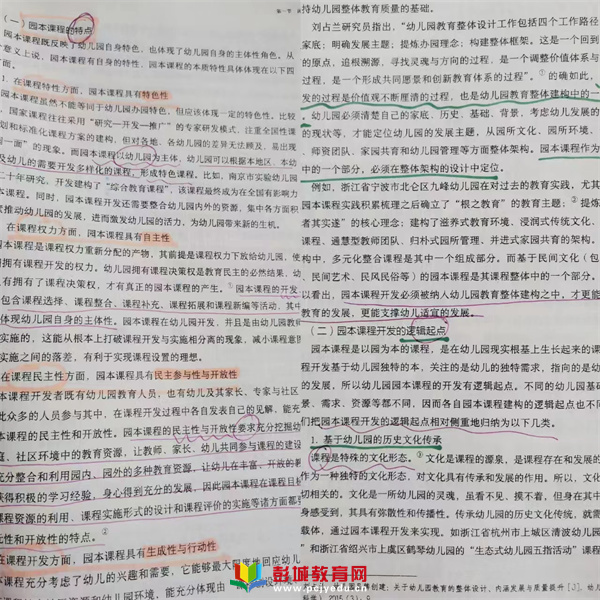 第一节
(一)园本课程的特点
园本课程既反映了幼儿园自身特色,也体现了幼儿园自身的主体性角色。从
意义上说,园本课程有自身的特性,园本课程的本质特性具体体现在以下四
方面。
1. 在课程特性方面,园本课程具有特色性
园本课程虽然不能等同于幼儿园办园特色,但应该体现一定的特色性,比较
,国家课程往往采用“研究—开发—推广”的专家研发模式,注重全国性课
划和标准化课程方案的建构,但对各地、各幼儿园的差异无法顾及,易出现
一面”的现象。而园本课程以幼儿园为主体,幼儿园可以根据本地区、本幼
及幼儿的需要开发多样化的课程,形成特色课程。比如,南京市实验幼儿园
二十年研究、开发建构了“综合教育课程”,该课程最终成为在全国有影响力
本课程。同时,园本课程开发还需要整合幼儿园内外的资源,集中各方面积
素推动幼儿园的发展,进而激发幼儿园的活力,为幼儿园带来新的生机。
. 在课程权力方面,园本课程具有自主性
园本课程是课程权力重新分配的产物,其前提是课程权力下放给幼儿园,使
园拥有开发课程的权力。幼儿园拥有课程决策权是教育民主的必然结果,幼
有拥有了课程决策权,才有真正的园本课程的产生。①园本课程的开发
包含课程选择、课程整合、课程补充、课程拓展和课程新编等活动,其中
体现幼儿园自身的主体性。园本课程在幼儿园开发,并且是由幼儿园教师
实施的,这能从根本上打破课程开发与实施相分离的现象,减小课程意图
实施之间的落差,有利于实现课程设置的理想。
在课程民主性方面,园本课程具有民主参与性与开放性
本课程开发者既有幼儿园教育人员,也有幼儿及其家长、专家与社区
此众多的人员参与其中,在课程开发过程中各自发表自己的见解,能充
课程的民主性和开放性。园本课程的民主性与开放性要求充分挖掘幼
庭、社区环境中的教育资源,让教师、家长、幼儿共同参与课程的建设
充分整合和利用园内、园外的多种教育资源,让幼儿在丰富、开放的教
获得积极的学习经验,身心得到充分的发展,因此园本课程在课程目标
课程资源的利用、课程实施形式的设计和课程评价的实施等诸方面都
元性和开放性的特点。②
在课程开发方面,园本课程具有生成性与行动性
课程充分考虑了幼儿的兴趣和需要,它能够最大限度地回应幼儿
持幼儿园教育质量的基础。
刘占兰研究员指出,“幼儿园教育整体设计工作包括四个工作路径
家底;明确发展主题;提炼办园理念;构建整体框架。这是一个回到
的原点,追根溯源,寻找灵魂与方向的过程,是一个调整价值体系与
程,是一个形成共同愿景和创新教育体系的过程”。①的确如此,
发的过程是价值观不断厘清的过程,也是幼儿园教育整体建构中的一
幼儿园必须清楚自己的家底、历史、基础、背景,考虑幼儿发展的
的现状等,才能定位幼儿园的发展主题,从园所文化、园所环境、
师资团队、家园共育和幼儿园管理等方面整体架构。园本课程作为
中的一个部分,必须在整体架构的设计中定位。
例如,浙江省宁波市北仑区九峰幼儿园在对过去的教育实践,尤其
园本课程实践积累梳理之后确立了“根之教育”的教育主题;②提炼
者其实遂”的核心理念;建构了滋养式教育环境、浸润式传统文化、
课程、通慧型教师团队、归朴式园所管理、并进式家园共育的架构。
构中,多元化整合课程是其中一个组成部分。而基于民间文化(包
民间艺术、民风民俗等)的园本课程是其课程整体中的一个部分。
以看出,园本课程开发必须被纳入幼儿园教育整体建构之中,才更能
教育的发展,更能支撑幼儿适宜的发展。
(二)园本课程开发的逻辑起点
园本课程是以园为本的课程,是在幼儿园现实根基上生长起来的课
程开发基于幼儿园独特的本,关注的是幼儿的独特需求,指向的是幼
的发展,所以幼儿园园本课程的开发有逻辑起点。不同的幼儿园基础
景、需求、资源等都不同,因而各自园本课程建构的逻辑起点也不同
们把园本课程开发的逻辑起点相对侧重地归纳为以下几类。
1. 基于幼儿园的历史文化传承
课程是特殊的文化形态。③文化是课程的源泉,是课程存在和发展的
作为一种独特的文化形态,对文化具有传承和发展的作用。所以,文化
切相关的。文化是一所幼儿园的灵魂,虽看不见、摸不着,但身在其中
身感受到,其具有弥散性和传播性。传承幼儿园的历史文化传统,就需
载体,通过园本课程开发来实现。如浙江省杭州市上城区清波幼儿园
和浙江省绍兴市上虞区鹤琴幼儿园的“生态式幼儿园五指活动”课程
创建:关于幼儿园教育的整体设计、内涵发展与质量提升[J]. 幼儿
2015(3).
彭城教育网
www.pcjyedu.cn